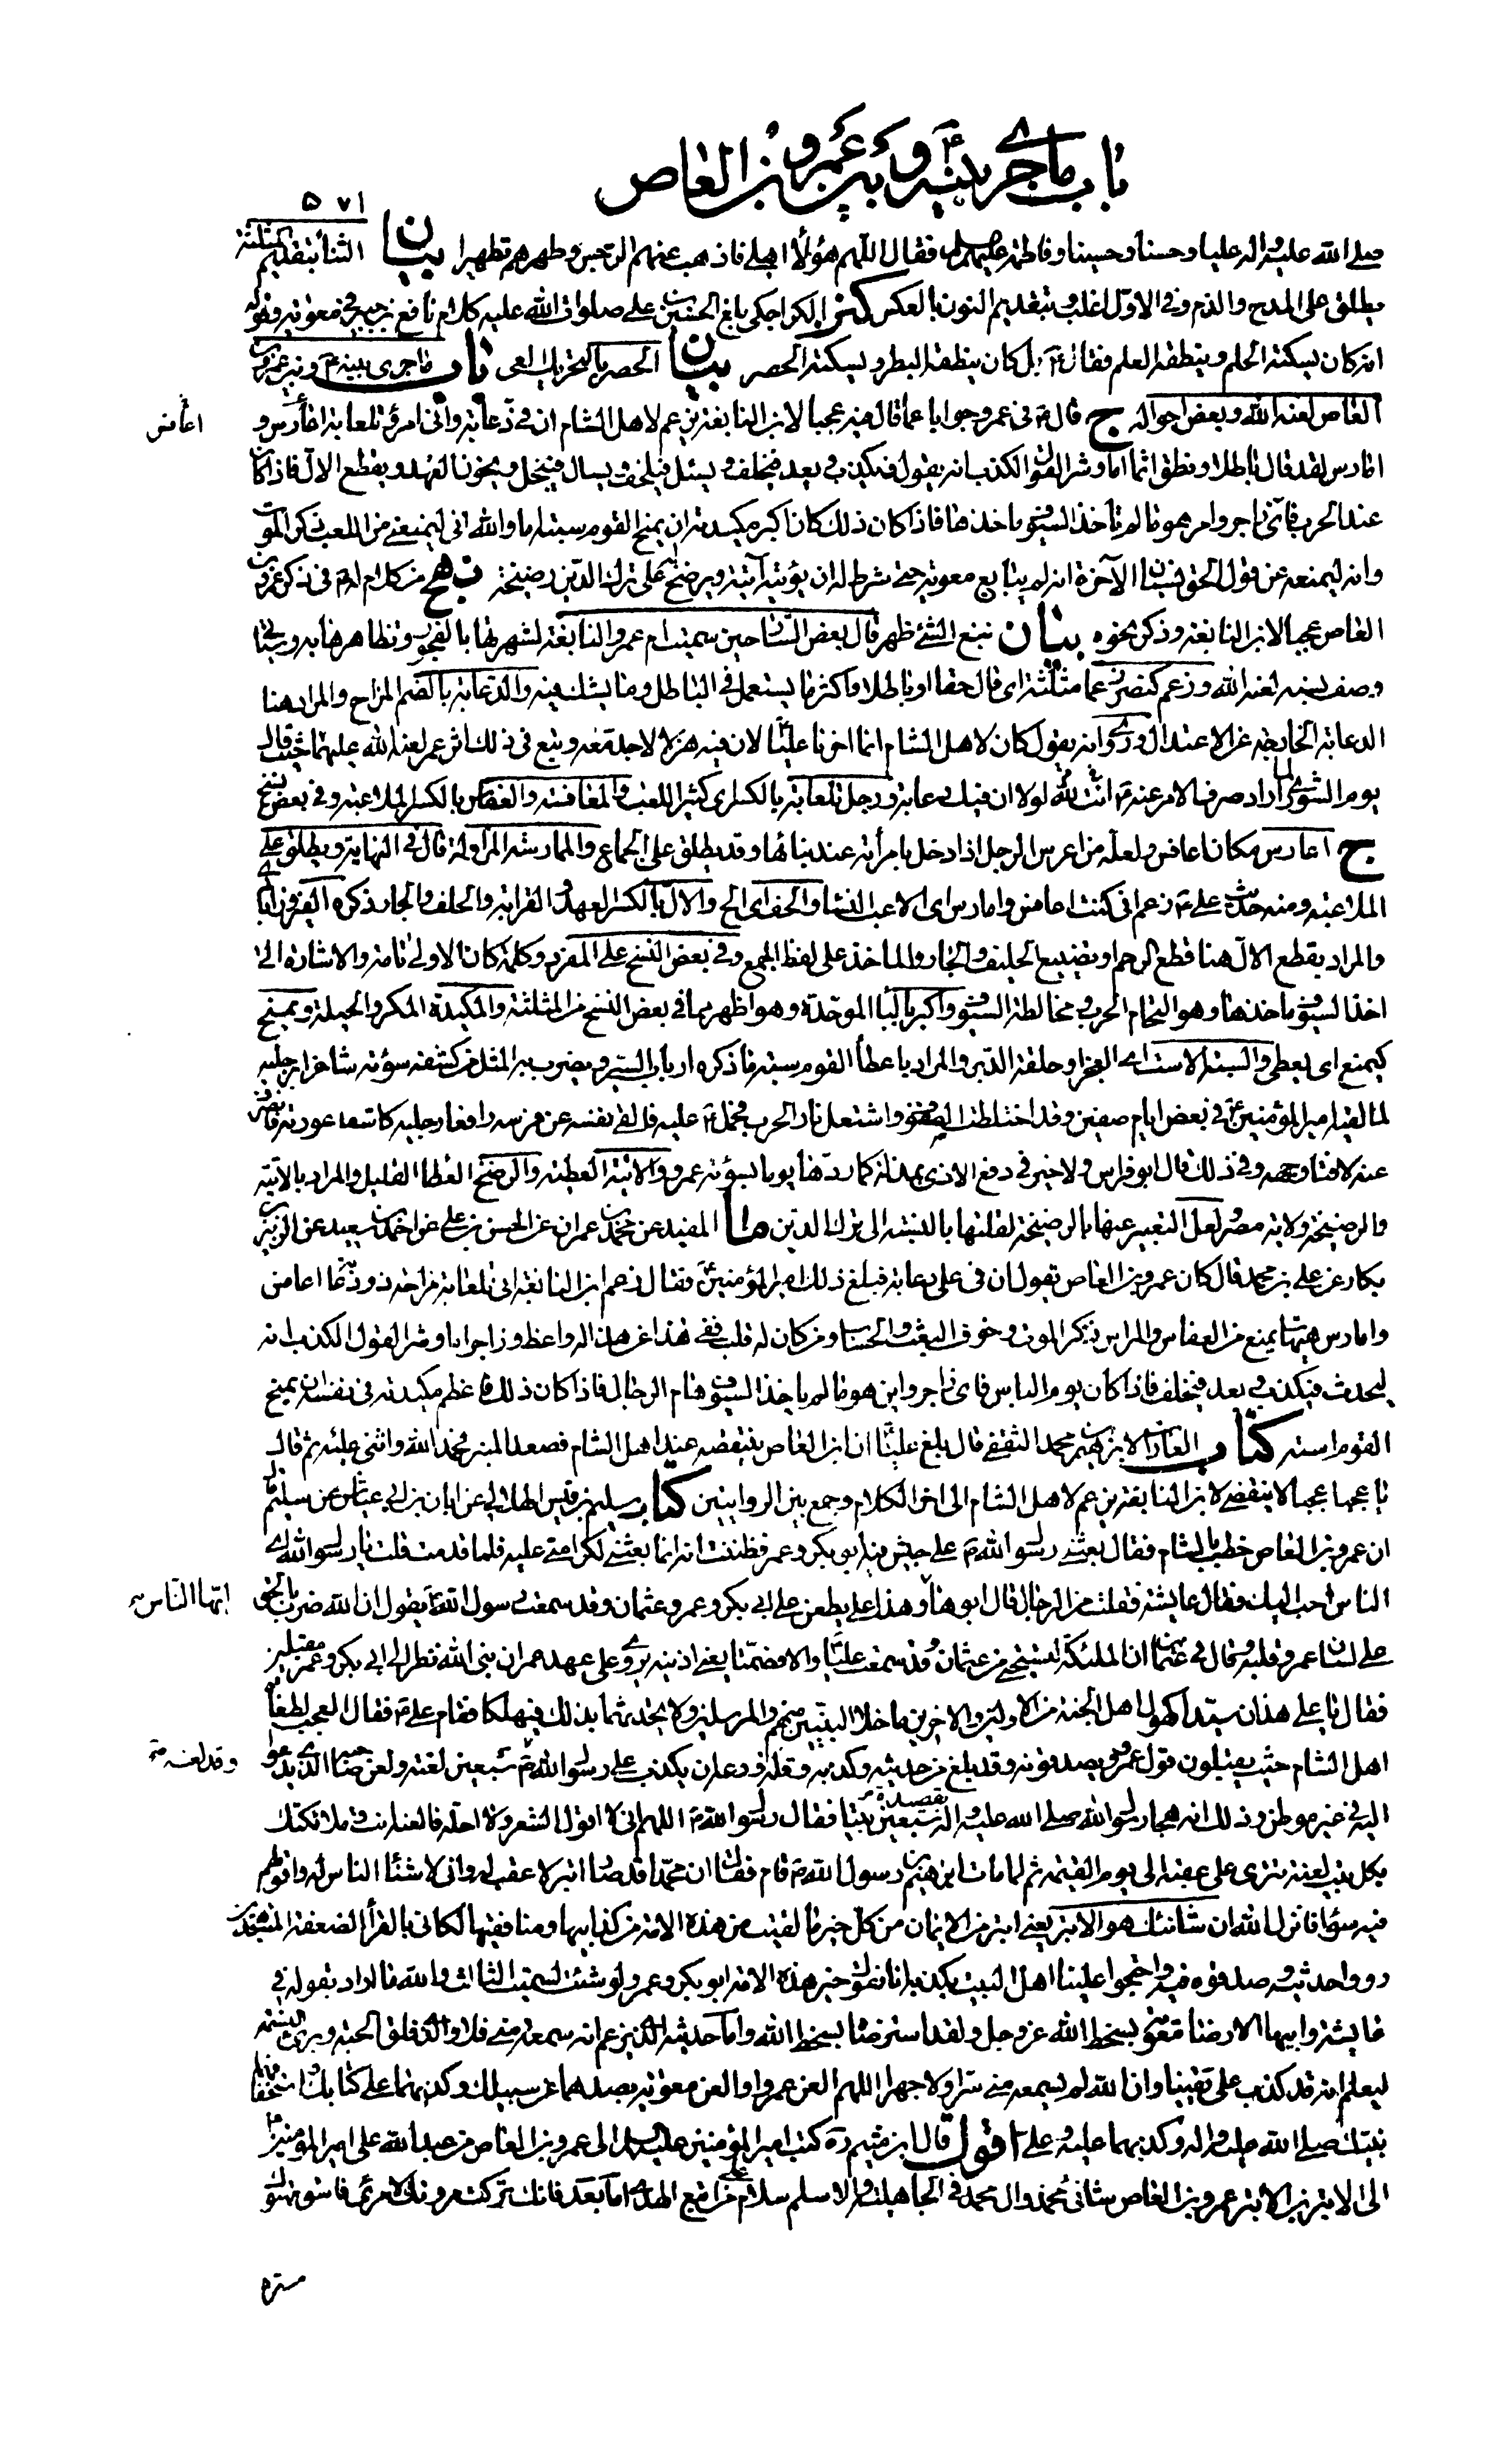 باب ما جرى بينه ع وبين عمرو بن العاص
٥٧١
صلى الله عليه واله عليا وحسنا وحسينا وفاطمة عليهم السلام فقال اللهم هؤلاء اهلي فاذهب عنهم الرجس وطهرهم تطهيرا بيان الثناء بتقديم المثلثة
يطلق على المدح والذم وفي الاول اغلب وبتقديم النون بالعكس كنز الكراجكي بلغ الحسن بن علي صلوات الله عليه كلام نافع بن جبير في معوية وقوله
انه كان يسكته الحلم وينطقه العلم فقال ع بل كان ينطقه البطر ويسكته الحصر بيان الحصر بالتحريك العي باب ما جرى بينه ع وبين عمرو بن
العاص لعنه الله وبعض احواله ج قال ع في عمرو جوابا عما قال فيه عجبا لابن النابغة يزعم لاهل الشام ان في دعابة واني امرؤ تلعابة اعارس و
اعافس
امارس لقد قال باطلا ونطق اثما اما وشر القول الكذب انه يقول فيكذب ويعد فيخلف ويسئل فيلحف ويسال فيبخل ويخون العهد ويقطع الال فاذا كان
عند الحرب فاي زاجر وامر هو ما لم تاخذ السيوف ماخذها فاذا كان ذلك كان اكبر مكيدته ان يمنح القوم سبته اما والله اني ليمنعني من اللعب ذكر الموت
وانه ليمنعه عن قول الحق نسيان الآخرة انه لم يبايع معوية حتى شرط له ان يؤتيه اتية ويرضخ له على ترك الدين رضيخة نهج من كلام له ع في ذكر عمرو بن
العاص عجبا لابن النابغة وذكر نحوه بيان نبغ الشئ ظهر قال بعض الشارحين سميت ام عمرو النابغة لشهرتها بالفجور وتظاهرها به وسياتي
وصف نسبه لعنه الله وزعم كنصر زعما مثلثة اى قال حقا او باطلا واكثر ما يستعمل في الباطل وما يشك فيه والدعابة بالضم المزاح والمراد هنا
الدعابة الخارجة عن الاعتدال وروى انه يقول كان لاهل الشام انما اخرنا عليا لان فيه هزلا لا جد معه وتبع في ذلك اثر عمر لعنة الله عليهما حيث قال
يوم الشورى لما اراد صرف الامر عنه ع لله انت لولا ان فيك دعابة ورجل تلعابة بالكسر اى كثير اللعب والمعافسة والعفاس بالكسر الملاعبة وفي بعض نسخ
ج اعارس مكان اعافس ولعله من اعرس الرجل اذا دخل بامرأته عند بنائها وقد يطلق على الجماع والممارسة المزاولة قال في النهاية ويطلق على
الملاعبة ومنه حديث علي ع زعم اني كنت اعافس وامارس اى الاعب النساء والحف اى الح والال بالكسر العهد والقرابة والحلف والجار ذكره الفيروزابادى
والمراد بقطع الال هنا قطع الرحم او تضييع الحليف والجار والماخذ على لفظ الجمع وفي بعض النسخ على المفرد وكلمة كان الاولى تامة والاشارة الى
اخذ السيوف ماخذها وهو التحام الحرب ومخالطة السيوف واكبر بالباء الموحدة وهو اظهر مما في بعض النسخ من المثلثة والمكيدة المكر والحيلة ويمنح
كيمنع اى يعطي والسبة الاست اى العجز او حلقة الدبر والمراد باعطاء القوم سبته ما ذكره ارباب السير ويضرب به المثل من كشفه سوئته شاغرا برجليه
لما لقيه امير المؤمنين ع في بعض ايام صفين وقد اختلطت الصفوف واشتعل نار الحرب فحمل ع عليه فالقى نفسه عن فرسه رافعا رجليه كاشفا عورته فانصرف
عنه لافتا وجهه وفي ذلك قال ابو فراس ولا خير في دفع الاذى بمذلة كما ردها يوما بسوئته عمرو والاتية العطية والرضخ العطاء القليل والمراد بالاتية
والرضيخة ولاية مصر ولعل التعبير عنها بالرضيخة لقلتها بالنسبة الى ترك الدين ما المفيد عن محمد بن عمران عن الحسن بن علي عن احمد بن سعيد عن الزبير بن
بكار عن علي بن محمد قال كان عمرو بن العاص يقول ان في علي دعابة فبلغ ذلك امير المؤمنين ع فقال زعم ابن النابغة اني تلعابة مزاحة ذو دعابة اعافس
وامارس هيهات يمنع من العفاس والمراس ذكر الموت وخوف البعث والحساب ومن كان له قلب ففي هذا عن هذا له واعظ وزاجر اما وشر القول الكذب انه
ليحدث فيكذب ويعد فيخلف فاذا كان يوم الباس فاى زاجر وامر هو ما لم ياخذ السيوف هام الرجال فاذا كان ذلك فاعظم مكيدته في نفسه ان يمنح
القوم استه كتاب الغارات لابرهيم بن محمد الثقفي قال بلغ عليا ع ان ابن العاص ينتقصه عند اهل الشام فصعد المنبر فحمد الله واثنى عليه ثم قال
يا عجبا عجبا لا ينقضي لابن النابغة يزعم لاهل الشام الى اخر الكلام وجمع بين الروايتين كتاب سليم بن قيس الهلالي عن ابان بن ابي عياش عن سليم قال
ان عمرو بن العاص خطب بالشام فقال بعثني رسول الله ص على جيش فيه ابو بكر وعمر فظننت انه انما بعثني لكرامتي عليه فلما قدمت قلت يا رسول الله اى
الناس احب اليك فقال عايشة فقلت من الرجال قال ابوها وهذا علي يطعن على ابي بكر وعمر وعثمان وقد سمعت رسول الله ص يقول ان الله ضرب بالحق
ايها الناس
على لسان عمر وقلبه وقال في عثمان ان الملئكة تستحيي من عثمان وقد سمعت عليا والا فصمتا يعني اذنيه يروى على عهد عمران نبي الله نظر الى ابي بكر وعمر مقبلين
فقال يا علي هذان سيدا كهول اهل الجنة من الاولين والاخرين ما خلا النبيين منهم والمرسلين ولا تحدثهما بذلك فيهلكا فقام علي ع فقال العجب لطغاة
اهل الشام حيث يقبلون قول عمرو ويصدقونه وقد بلغ من حديثه وكذبه وقلة ورعه ان يكذب على رسول الله ص وقد لعنه سبعين لعنة ولعن صاحبه الذي يدعو
وقد لعنه
اليه في غير موطن وذلك انه هجا رسول الله صلى الله عليه واله بقصيدة سبعين بيتا فقال رسول الله ص اللهم اني لا اقول الشعر ولا احله فالعنه انت وملائكتك
بكل بيت لعنة تترى على عقبه الى يوم القيمة ثم لما مات ابرهيم بن رسول الله ص قام فقال ان محمدا قد صار ابتر لا عقب له واني لاشنأ الناس له واقولهم
فيه سوءا فانزل الله ان شانئك هو الابتر يعني ابتر من الايمان من كل خير ما لقيت من هذه الامة من كذابيها ومنافقيها لكاني بالقراء الضعفة المجتهدين
رووا حديثه وصدقوه فيه واحتجوا علينا اهل البيت بكذبه انا نقول خير هذه الامة ابو بكر وعمر ولو شئت لسميت الثالث والله ما اراد بقوله في
عايشة وابيها الا رضا معوية بسخط الله عز وجل ولقد استرضاه بسخط الله واما حديثه الذي يزعم انه سمعه مني فلا والذي فلق الحبة وبرئ النسمة
ليعلم انه قد كذب علي يقينا وان الله لم يسمعه مني سرا ولا جهرا اللهم العن عمروا والعن معوية بصدهما عن سبيلك وكذبهما على كتابك واستخفافهما
بنبيك صلى الله عليه واله وكذبهما عليه وعلي اقول قال ابن ميثم ره كتب امير المؤمنين عليه السلام الى عمرو بن العاص من عبد الله علي امير المؤمنين
الى الابتر بن الابتر عمرو بن العاص شانئ محمد وال محمد في الجاهلية والاسلام سلام على من اتبع الهدى اما بعد فانك تركت مروتك لامرئ فاسق مهتوك
ستره